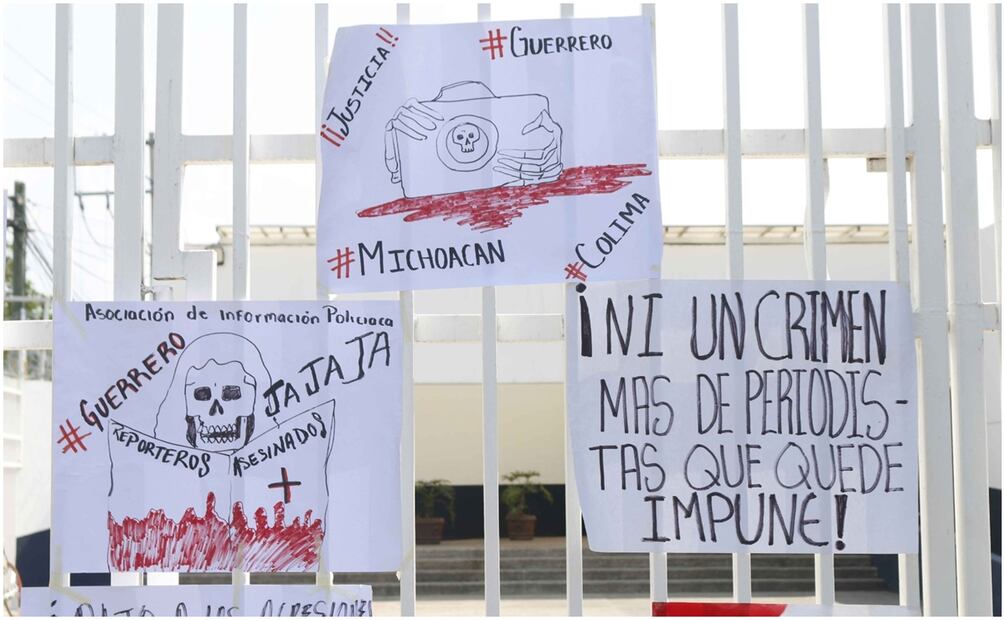 ¡¡JUSTICIA!!
#GUERRERO
#MICHOACAN
#COLIMA
Asociación de Información Policiaca
#GUERRERO
JA JA JA
REPORTEROS
ASESINADOS
¡NI UN CRIMEN
MAS DE PERIODIS-
TAS QUE QUEDE
IMPUNE!
¡ALTO A LAS AGRESIONES